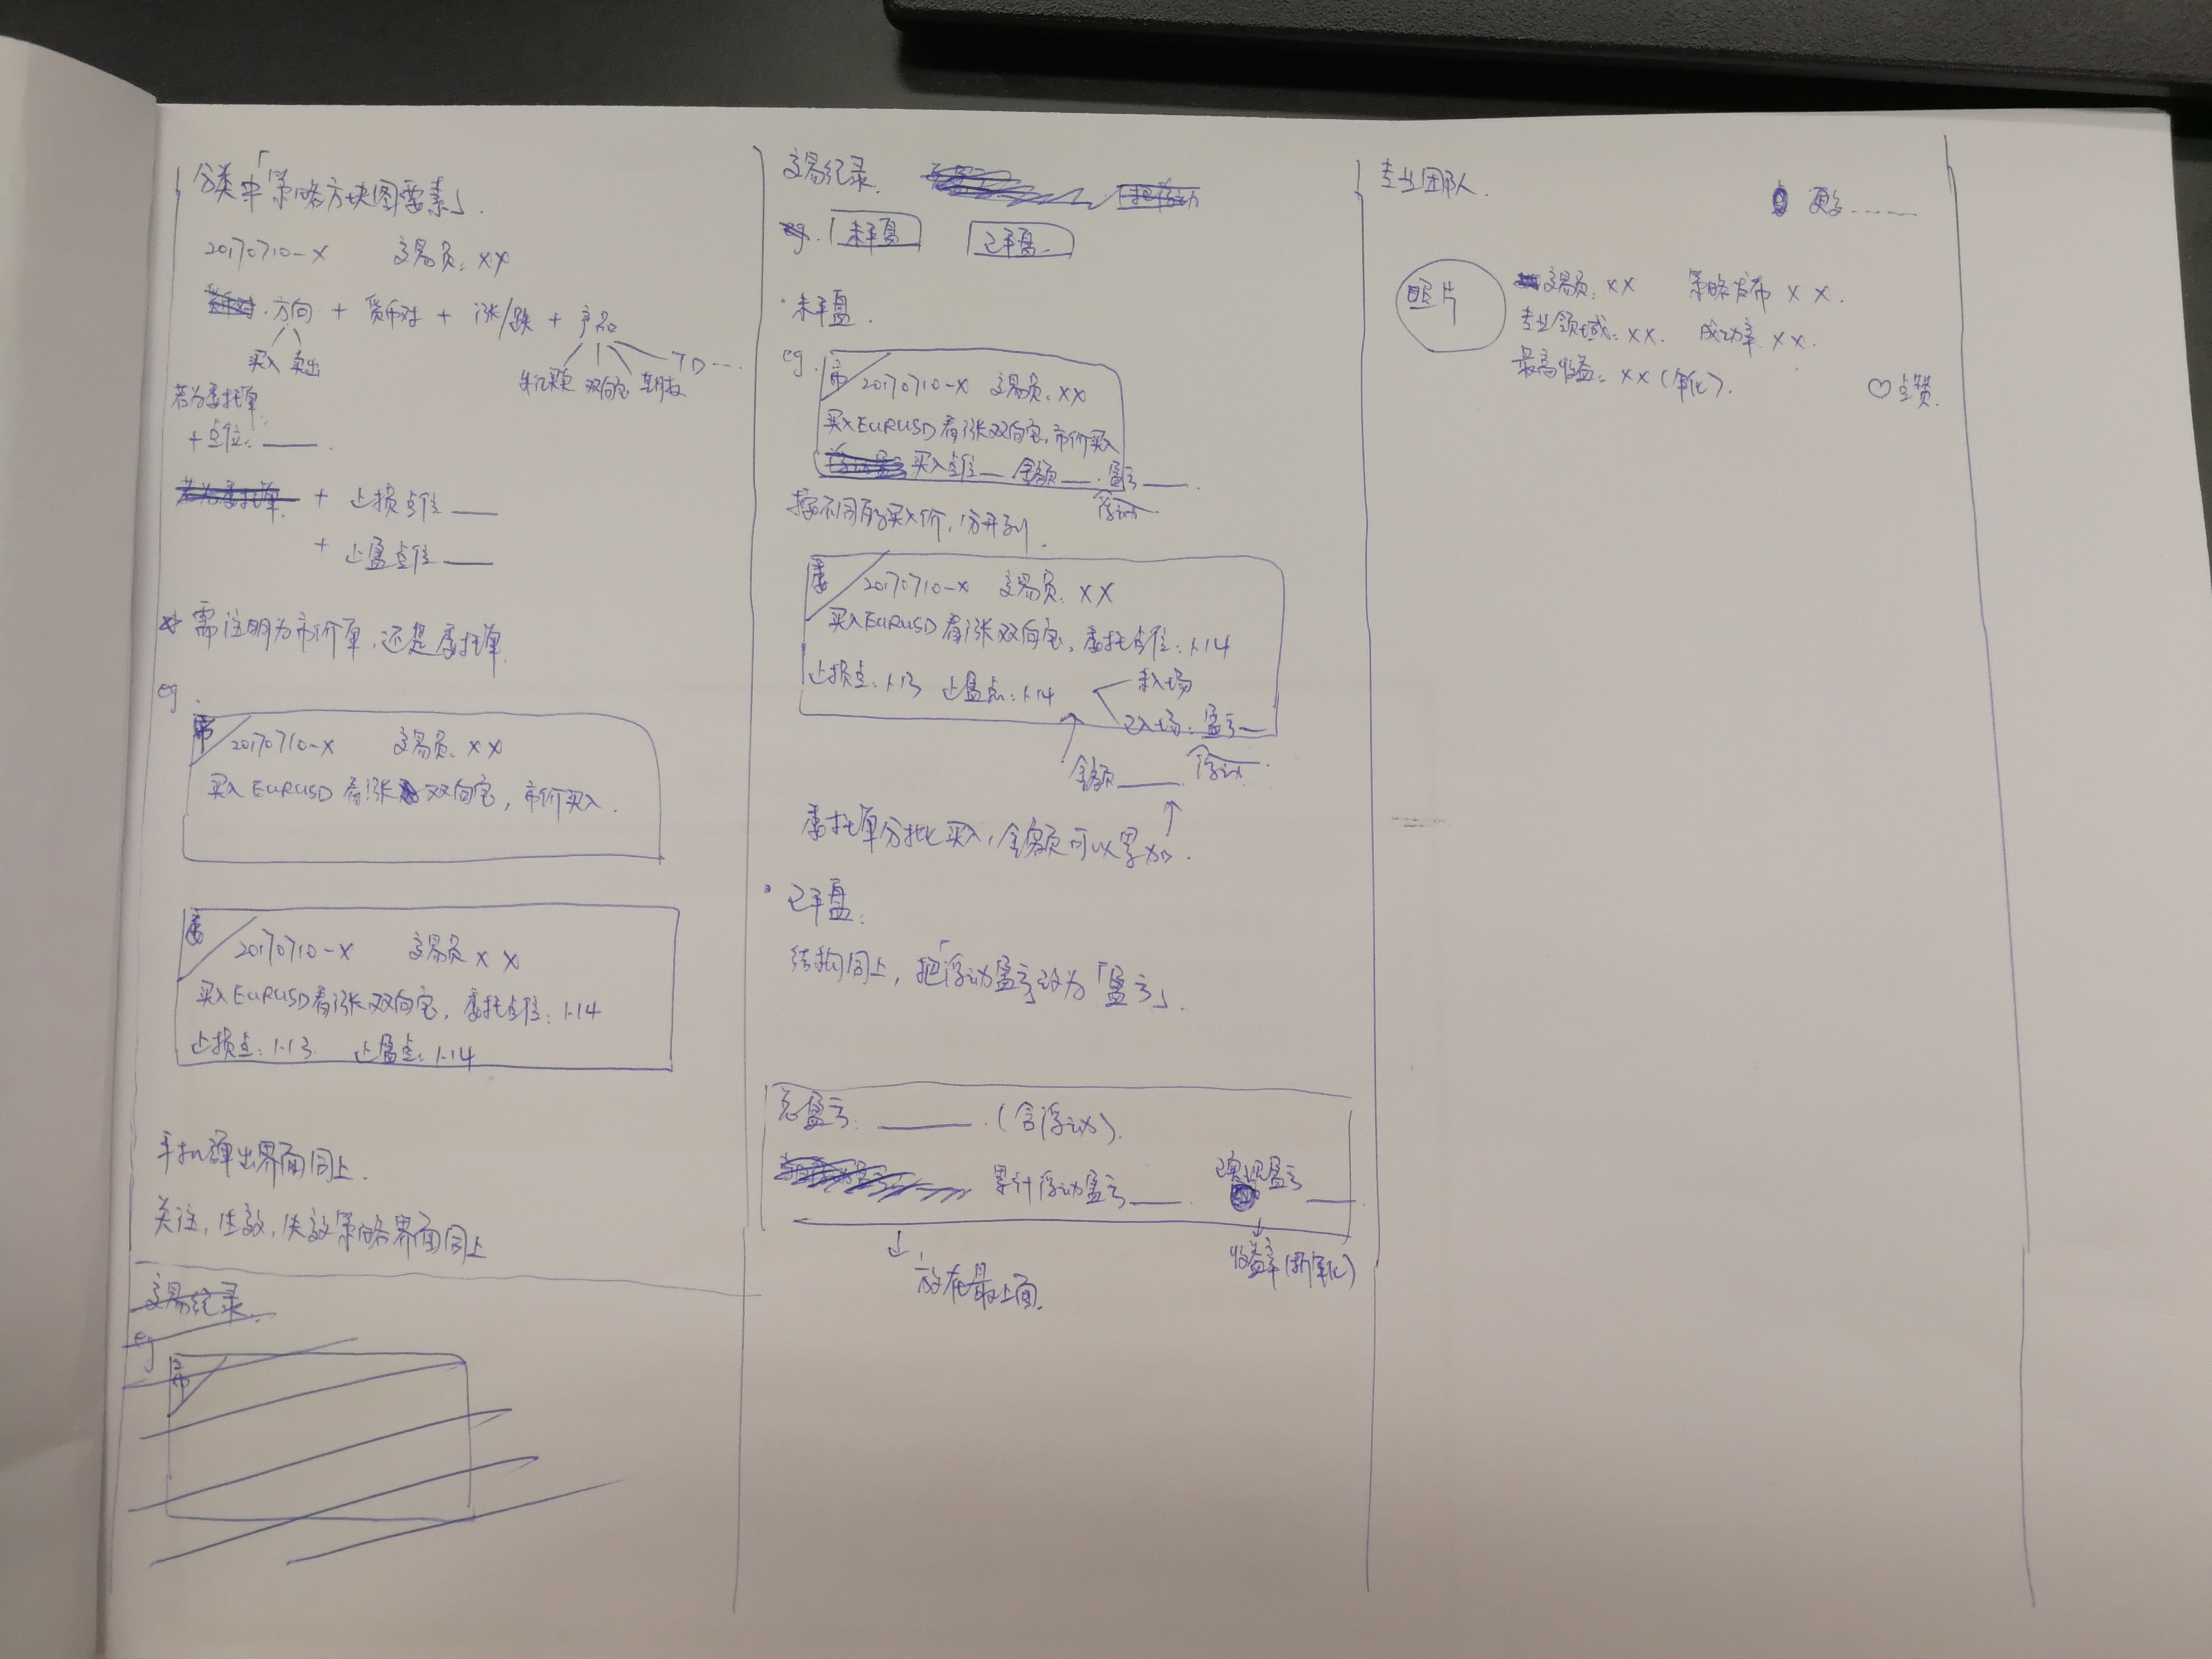 分类中「策略方块图要素」.
20170710-X 交易员: XX
方向 + 货币对 + 涨/跌 + 产品
买入 卖出
纸黄 双向宝 期权 TD…
若为委托单
+ 点位: ___.
+ 止损点位 ___
+ 止盈点位 ___
* 需注明为市价单, 还是委托单.
eg.
市 20170710-X 交易员: XX
买入EURUSD看涨双向宝, 市价买入.
委 20170710-X 交易员 XX
买入EURUSD看涨双向宝, 委托点位: 1.14
止损点: 1.13. 止盈点: 1.14
手机弹出界面同上.
关注, 生效, 失效策略界面同上
交易纪录.
eg
市
交易纪录.
eg. 未平盘 已平盘.
· 未平盘.
eg. 市 20170710-X 交易员: XX
买入EURUSD看涨双向宝, 市价买入
买入点位 __ 金额 __. 盈亏 __.
浮动.
按不同的买入价, 分开列.
委 20170710-X 交易员: XX
买入EURUSD看涨双向宝, 委托点位: 1.14
止损点: 1.13 止盈点: 1.14 未入场
已入场: 盈亏 __
金额 ___ 浮动.
委托单分批买入, 金额可以累加.
· 已平盘:
结构同上, 把「浮动盈亏」改为「盈亏」.
总盈亏: ____. (含浮动).
累计浮动盈亏 ___. 已实现盈亏 ___
放在最上面. 收益率(折年化)
专业团队.
更多……
照片
交易员: XX 策略发布 XX.
专业领域: XX. 成功率: XX.
最高收益: XX (年化).
♡点赞.